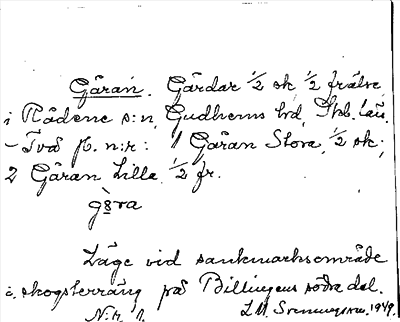 Gåran. Gårdar 1/2 sk 1/2 frälse
i Rådene s:n, Gudhems hd, Skb. län.
- Två jb. n:r: 1 Gåran Stora, 1/2 sk;
2 Gåran Lilla, 1/2 fr.
Läge vid sankmarksområde
i skogsterräng på Billingens södra del.
1949.